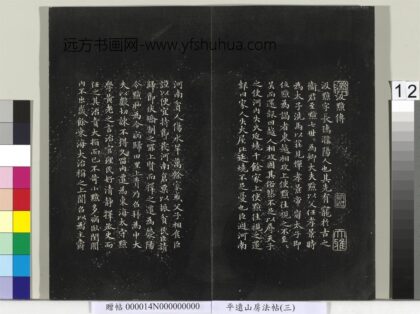 远方书画网-www.yfshuhua.com
汲黯傳
汲黯字長孺濮陽人也其先有寵於古之
衛君至黯七世世為卿大夫黯以父任孝景時
為太子洗馬以莊見憚孝景帝崩太子即
位黯為謁者東越相攻上使黯往視之不至至
吳而還報曰越人相攻固其俗然不足以辱天子
之使河內失火延燒千餘家上使黯往視之還
報曰家人失火屋比延燒不足憂也臣過河南
河南貧人傷水旱萬餘家或父子相食臣
謹以便宜持節發河南倉粟以振貧民臣請
歸節伏矯制之罪上賢而釋之遷為滎陽
令黯恥為令病歸田里上聞乃召拜為中大
夫以數切諫不得久留內遷為東海太守黯
學黃老之言治官理民好清靜擇丞史而
任之其治責大指而已不苛小黯多病臥閨閤
內不出歲餘東海大治稱之上聞召以為主爵
12
贈帖 000014N000000000
平遠山房法帖(三)